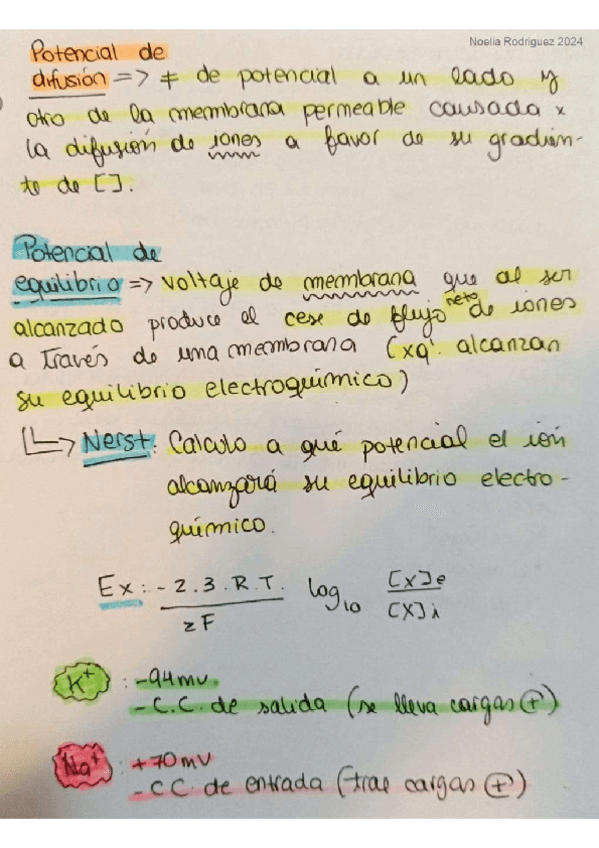 Noelia Rodriguez 2024
Potencial de
difusión => ≠ de potencial a un lado y
otro de la membrana permeable causada x
la difusión de iones a favor de su gradien-
te de [].
Potencial de
equilibrio => Voltaje de membrana que al ser
alcanzado produce el cese de flujo neto de iones
a través de una membrana (xq' alcanzan
su equilibrio electroquímico)
↳ Nerst: Calculo a qué potencial el ión
alcanzará su equilibrio electro-
químico.
Ex: -2.3.R.T. / zF log10 [X]e / [X]i
K+ : -94mv.
- C.C. de salida (se lleva cargas +)
Na+ : +70mV
- C C. de entrada (trae cargas +)